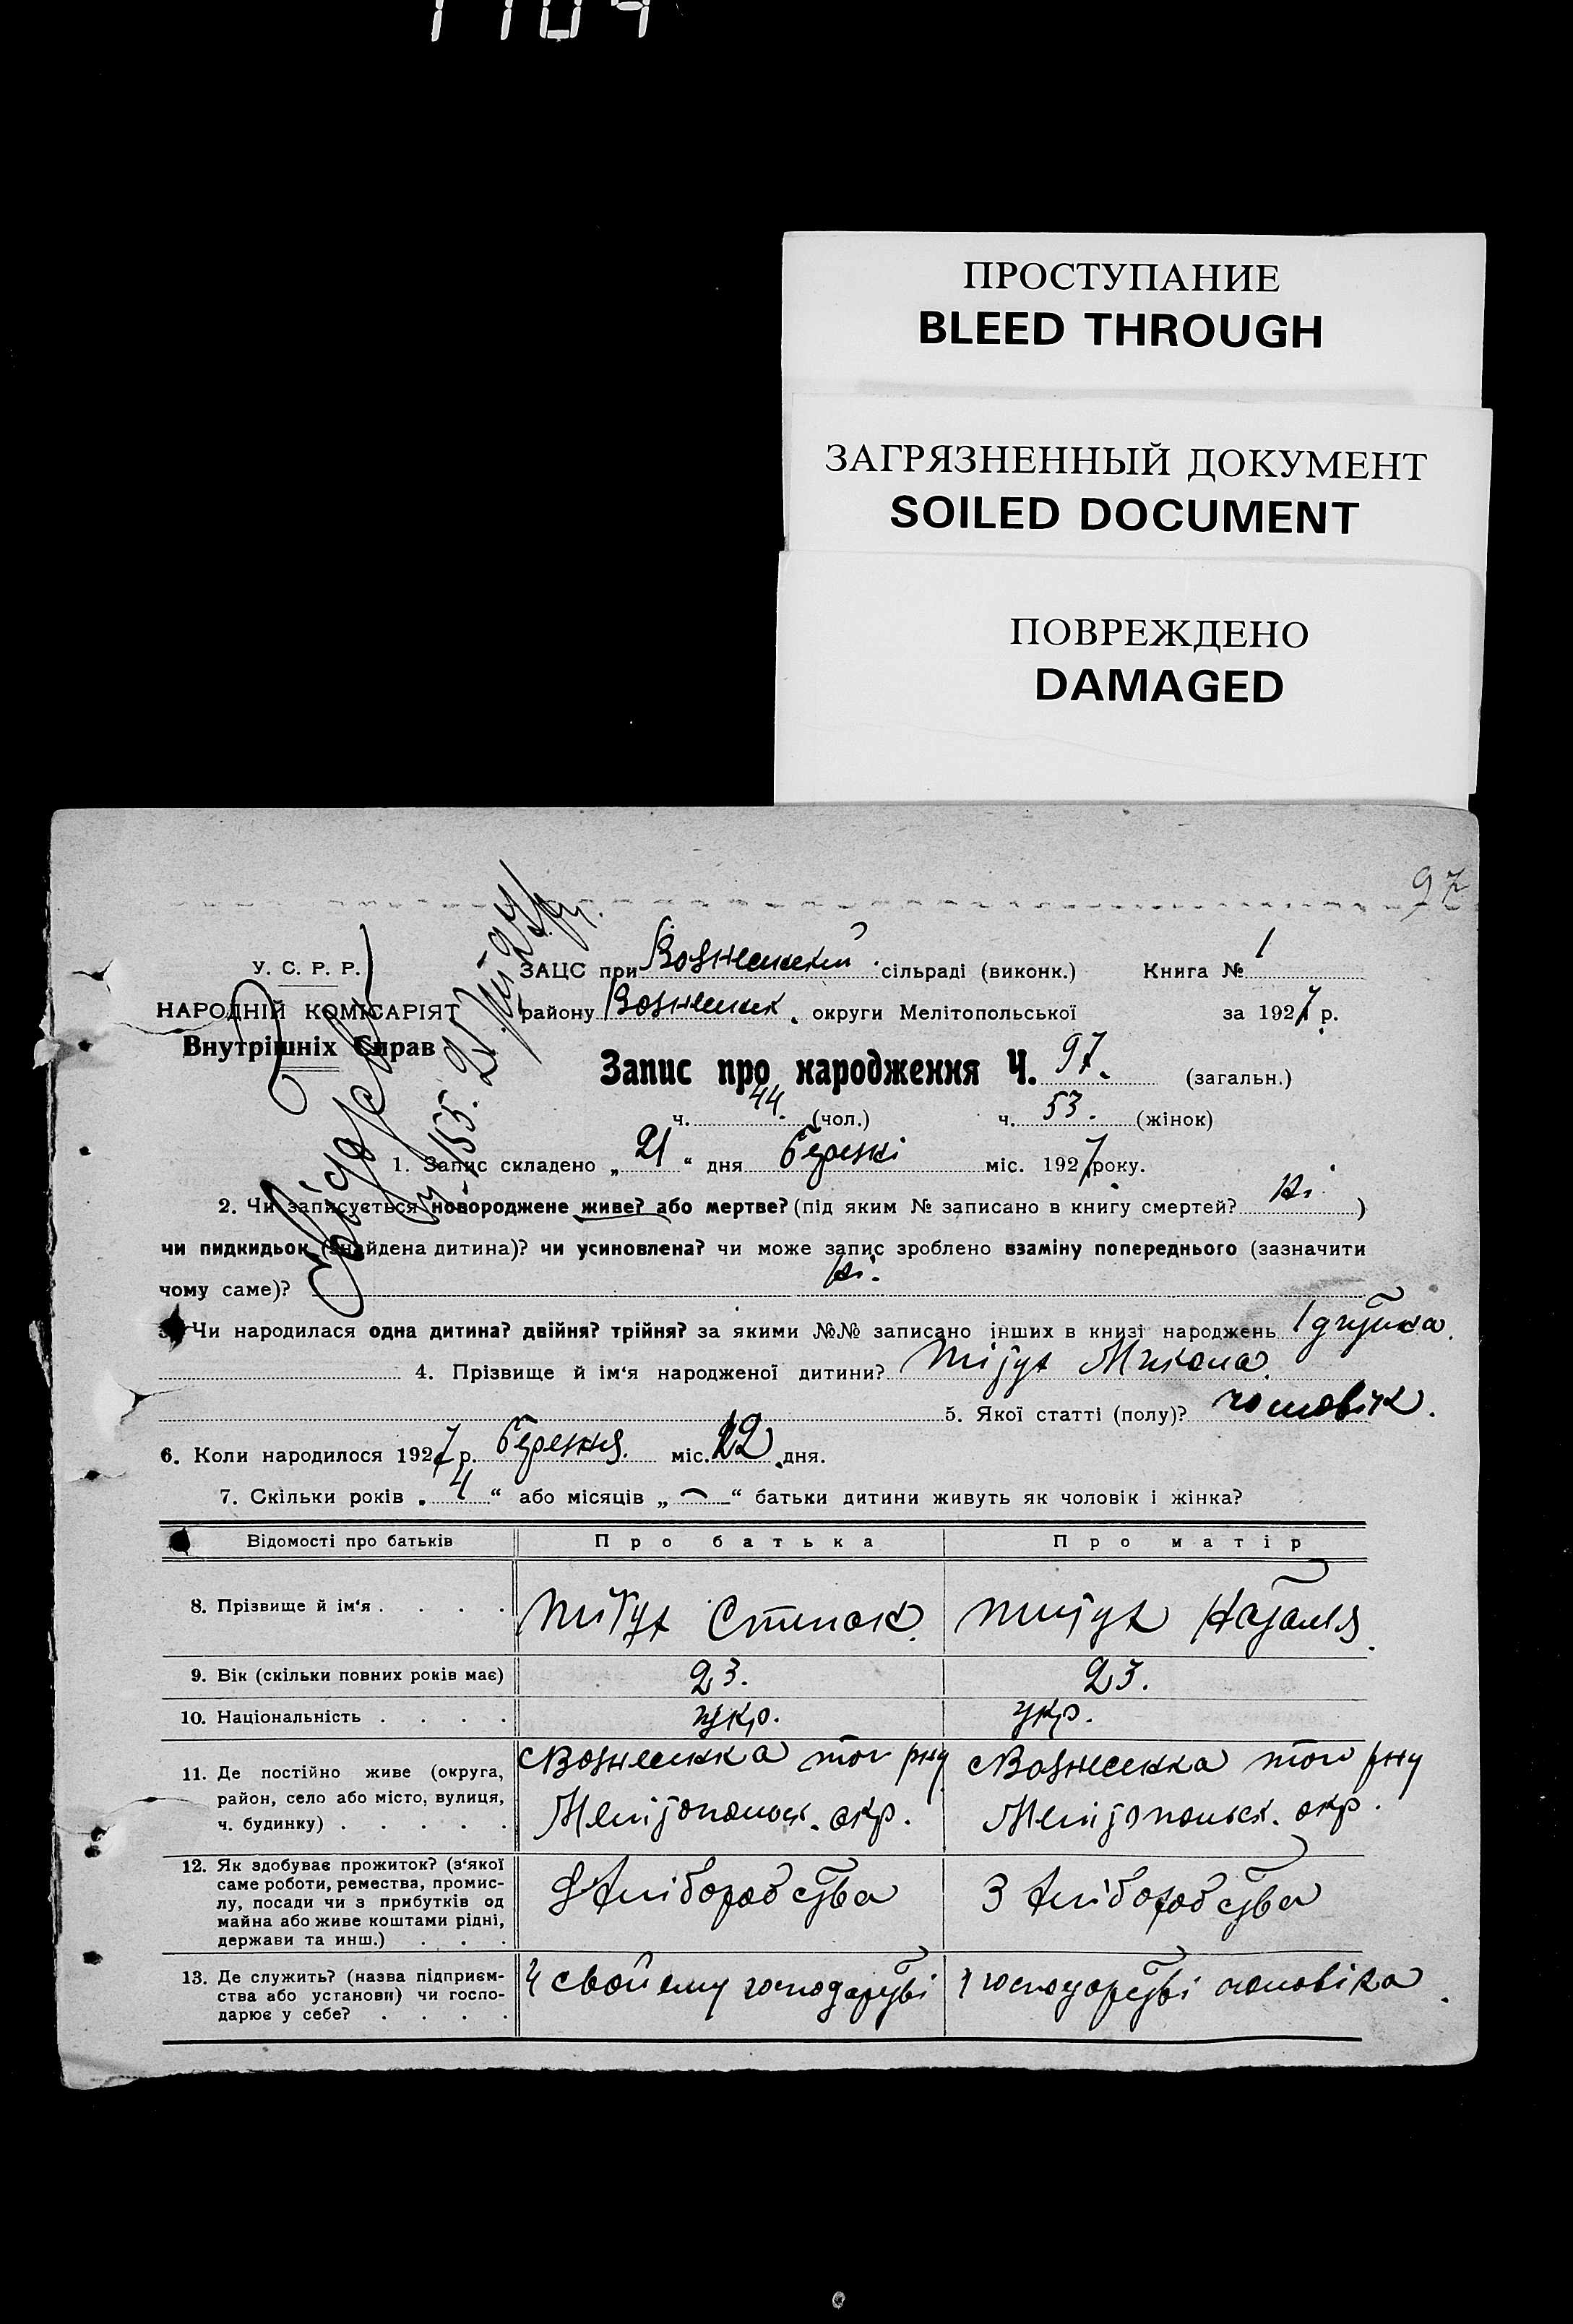 1104
ПРОСТУПАНИЕ
BLEED THROUGH
ЗАГРЯЗНЕННЫЙ ДОКУМЕНТ
SOILED DOCUMENT
ПОВРЕЖДЕНО
DAMAGED
97
У. С. Р. Р.
НАРОДНІЙ КОМІСАРІЯТ
Внутрішніх Справ
ЗАЦС при сільраді (виконк.) Книга № 1
району Вознесенск. округи Мелітопольської за 1927 р.
Запис про народження Ч. 97. (загальн.)
ч. 44. (чол.) ч. 53. (жінок)
1. Запис складено „ 21 “ дня міс. 1927 року.
2. Чи записується новороджене живе? або мертве? (під яким № записано в книгу смертей? Ні )
чи пидкидьок (знайдена дитина)? чи усиновлена? чи може запис зроблено взаміну попереднього (зазначити
чому саме)? Ні.
3. Чи народилася одна дитина? двійня? трійня? за якими №№ записано інших в книзі народжень 1
4. Прізвище й ім‘я народженої дитини? Микола.
5. Якої статті (полу)? чоловік.
6. Коли народилося 1927 р. березня. міс. дня.
7. Скільки років „ 4 “ або місяців „ — “ батьки дитини живуть як чоловік і жінка?
Відомості про батьків Про батька Про матір
8. Прізвище й ім‘я . . . . Наталія
9. Вік (скільки повних років має) 23. 23.
10. Національність . . . . укр. укр.
11. Де постійно живе (округа, район, село або місто, вулиця, ч. будинку) . . . . .
с Вознесенка того рну с Вознесенка того рну
Мелітопольск. окр. Мелітопольск. окр.
12. Як здобуває прожиток? (з‘якої саме роботи, ремества, промислу, посади чи з прибутків од майна або живе коштами рідні, держави та инш.) . . .
З хліборобства З хліборобства
13. Де служить? (назва підприємства або установи) чи господарює у себе? . . . .
У свойому господарстві У господарстві чоловіка.